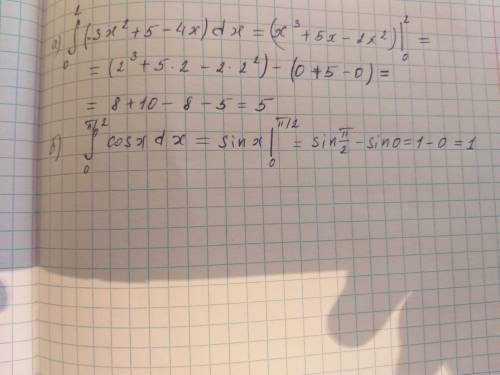 а) ∫₀² (-3x² + 5 - 4x) dx = (x³ + 5x - 2x²) |₀² =
= (2³ + 5·2 - 2·2²) - (0 + 5 - 0) =
= 8 + 10 - 8 - 5 = 5
б) ∫₀^(π/2) cosx dx = sin x |₀^(π/2) = sin π/2 - sin0 = 1 - 0 = 1